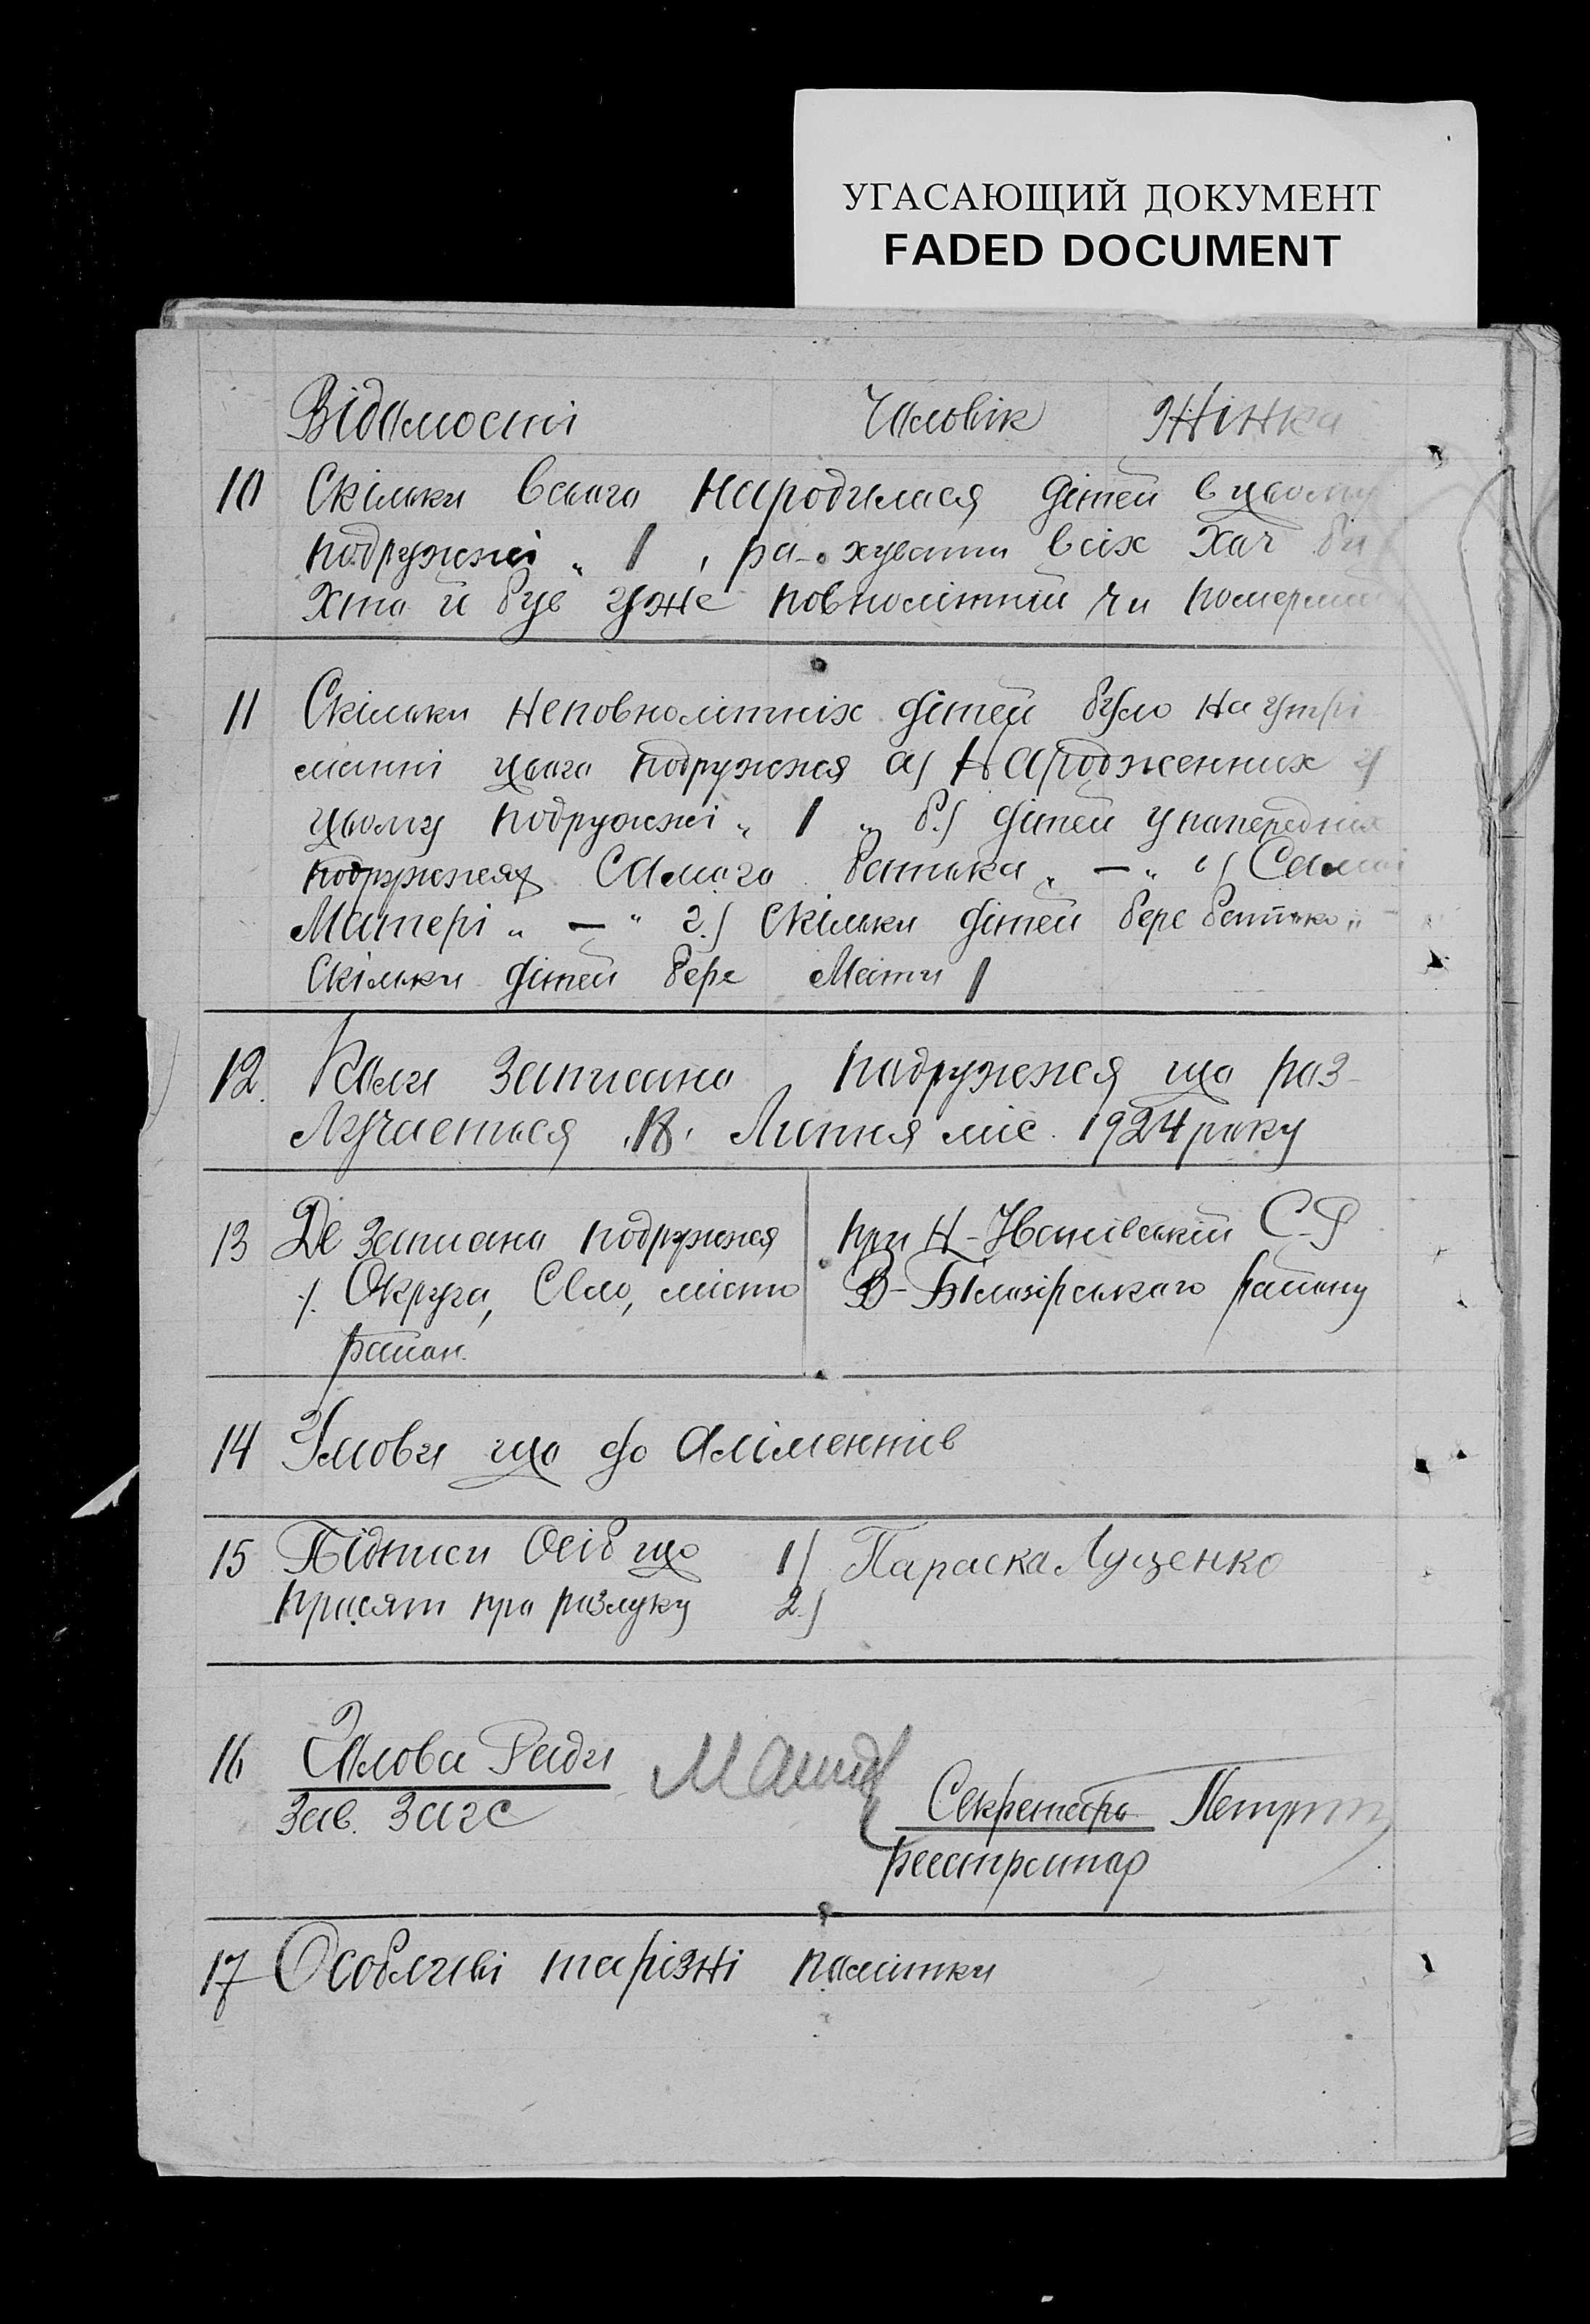 УГАСАЮЩИЙ ДОКУМЕНТ
FADED DOCUMENT
Відомості Чоловік Жінка
10 Скільки всього народилося дітей в цьому
подружжі „ 1 , ра-хувати всіх хоч би
хто й був уже повнолітній чи померший
11 Скільки неповнолітніх дітей було на утрі
манні цього подружжя а) Народженних у
цьому подружжі „ 1 „ б.) дітей у попередніх
подружжях Самого батька „ — „ в) Самої
Матері „ — „ г.) Скільки дітей бере батько „ —
Скільки дітей бере Мати 1
12. Коли записано подружжя що роз-
лучається „18„ Липня міс. 1924 року
13 Де записано подружжя
•/. Округа, Село, місто
район.
при Н-Іванівській С-Р
В-Білозірського району
14 Умови що до Аліментів
15 Підписи Осіб що 1) Параска Луценко
просят про розлуку 2.)
16 Голова Ради
Зав. Загс
Секретарь
реєстратор
17 Особливі та різні помітки